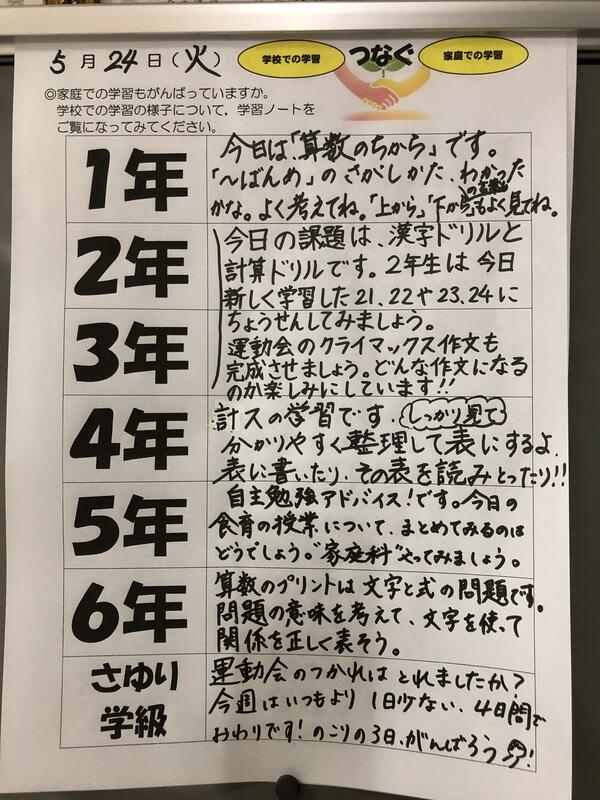 5月24日(火)
学校での学習
つなぐ
家庭での学習
◎家庭での学習もがんばっていますか。
学校での学習の様子について,学習ノートを
ご覧になってみてください。
1年
今日は「算数のちから」です。
「~ばんめ」のさがしかた、わかった
かな。よく考えてね。「上から」「下から」もよく見てね。
2年
3年
今日の課題は、漢字ドリルと
計算ドリルです。2年生は今日
新しく学習した21、22や23、24に
ちょうせんしてみましょう。
運動会のクライマックス作文も
完成させましょう。どんな作文になる
のか楽しみにしています!!
4年
計スの学習です。しっかり見て
分かりやすく整理して表にするよ
表に書いたり、その表を読みとったり!!
5年
自主勉強アドバイス!です。今日の
食育の授業について、まとめてみるのは
どうでしょう。"家庭科"やってみましょう。
6年
算数のプリントは文字と式の問題です。
問題の意味を考えて、文字を使って
関係を正しく表そう。
さゆり
学級
運動会のつかれはとれましたか?
今週はいつもより1日少ない、4日間で
おわりです!のこりの3日、がんばろう!